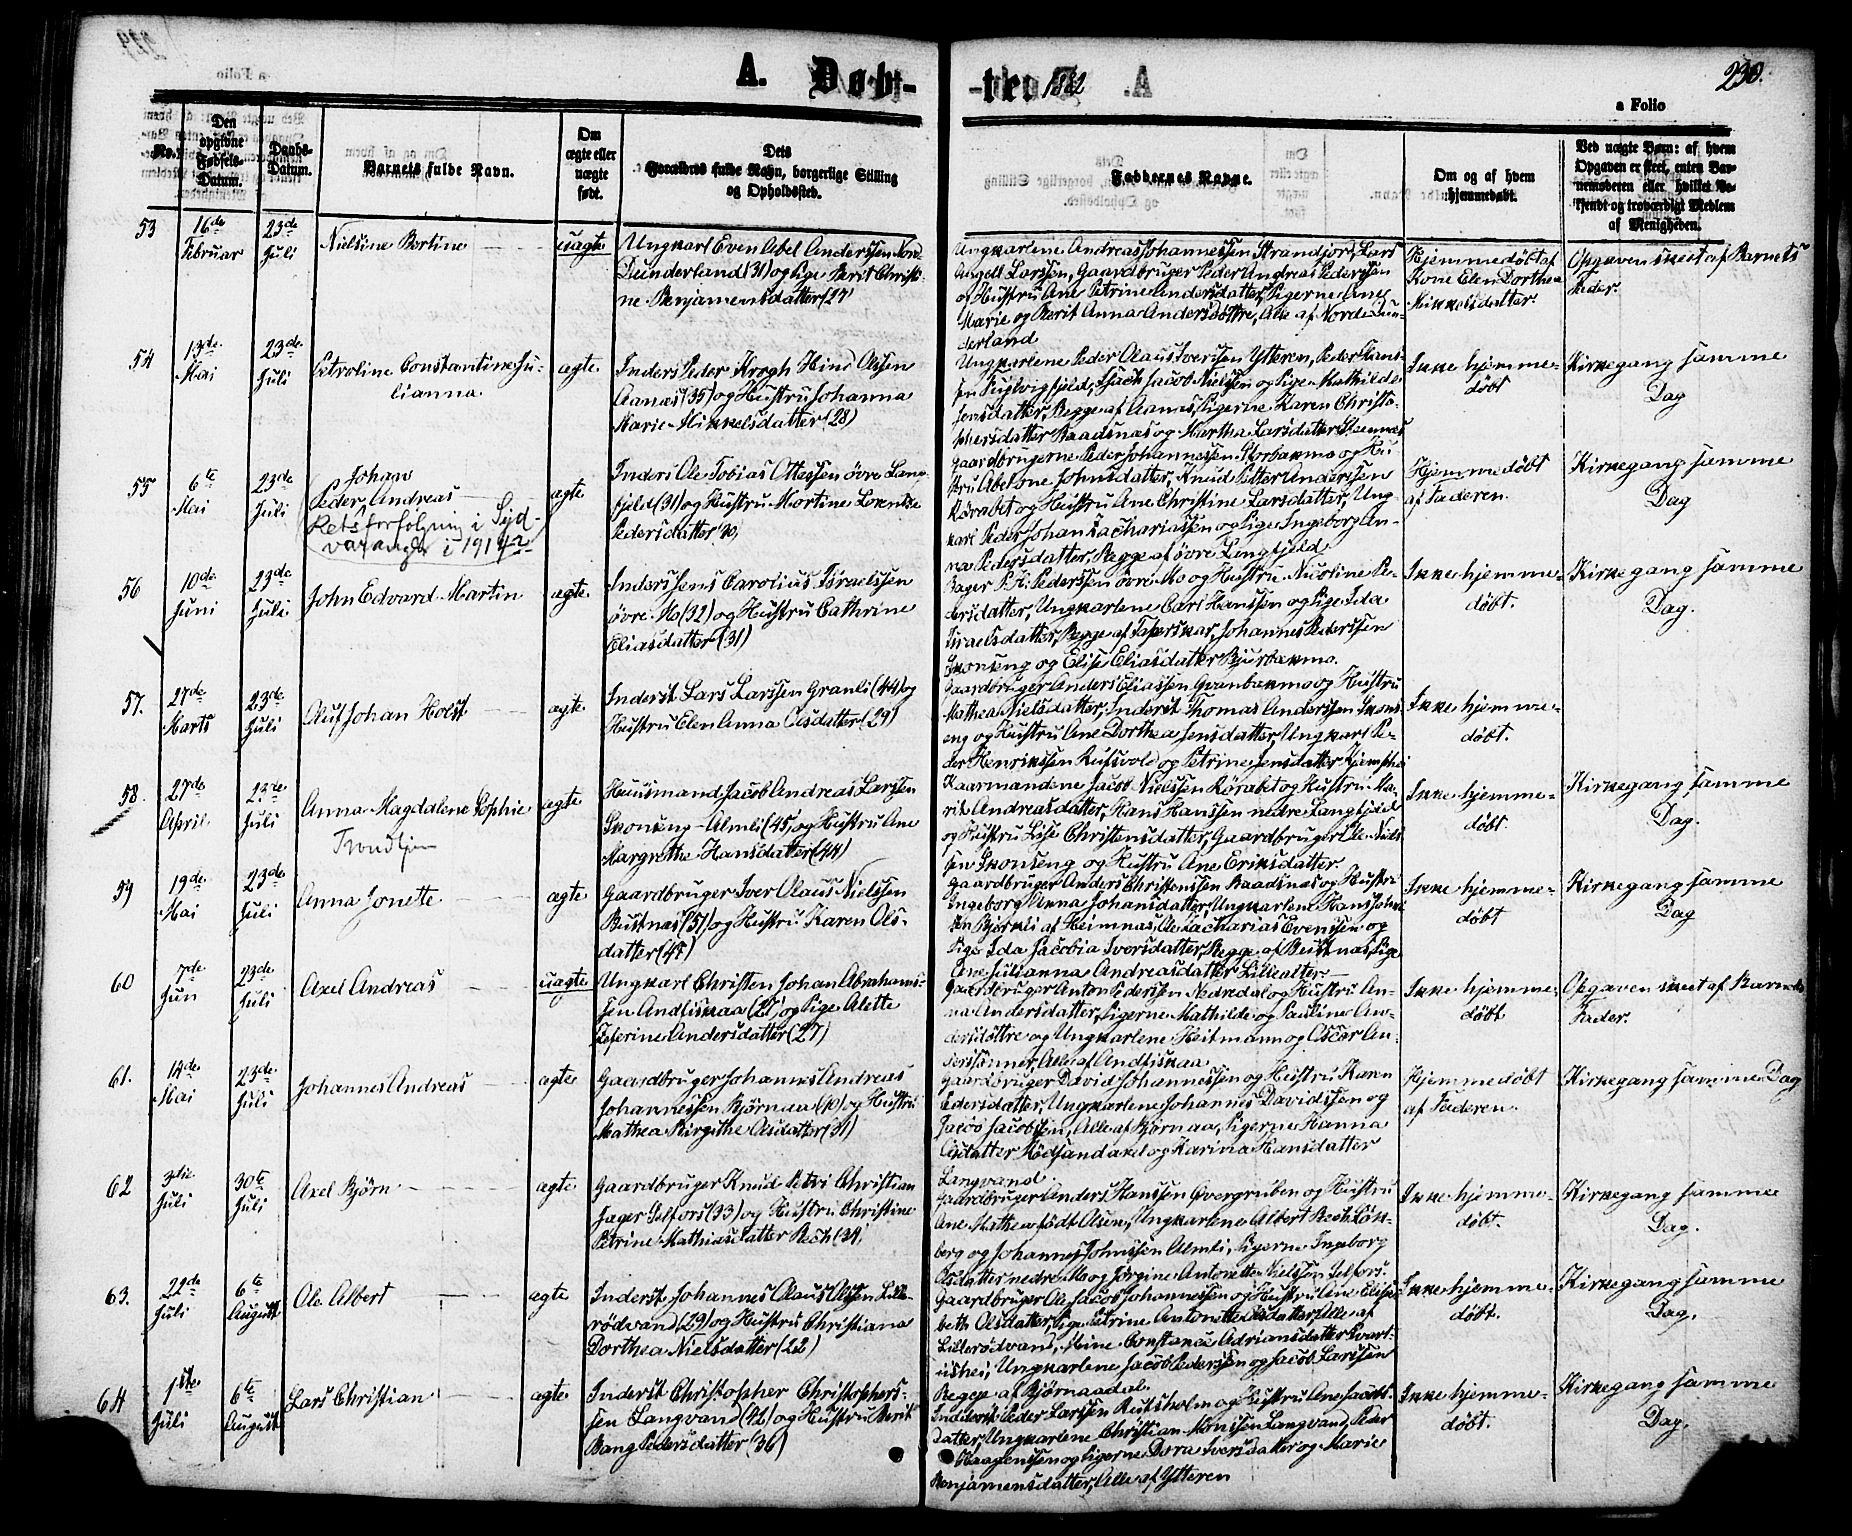 A. Døb-
-te. 1882
230.
a Folio
No.
Den opgivne Fødsels-Datum.
Daabs-Datum.
Barnets fulde Navn.
Om ægte eller uægte født.
Dets Forældres fulde Navn, borgerlige Stilling og Opholdssted.
Faddernes Navne.
Om og af hvem hjemmedøbt.
Ved uægte Børn: af hvem Opgaven er skeet, enten Barnemoderen eller hvilket bekjendt og troværdigt Medlem af Menigheden.
53
16de Februar
23de Juli
Nielsine Bertine
uægte
Ungkarl Even Abel Anderssen Nord
Dunderland (31) og Pige Berit Christi-
ne Benjaminsdatter (27)
Ungkarlene Andreas Johannessen Strandjord, Lars
Angell Larssen, Gaardbruger Peder Andreas Pederssen
og Hustru Ane Petrine Andersdatter, Pigerne Ane
Marie og Berit Anna Andersdøttre, Alle af Nord Dun-
derland
Hjemmedøbt af
Kone Elen Dorthea
Mikkelsdatter.
Opgaven skeet af Barnets
Fader.
54
13de Mai
23de Juli
Petroline Constantine Ju-
lianna
ægte
Inders. Peder Krogh Hind Olssen
Aanæs (35) og Hustru Johanna
Marie Mikkelsdatter (28)
Ungkarlene Peder Olaus Iverssen Ytteren, Peder Hans-
sen Fuglvigfjeld, Isach Jacob Nielssen og Pige Mathilde
Jensdatter, Begge af Aanæs, Pigerne Karen Christo-
phersdatter Baadsnæs og Martha Larsdatter
Ikke hjemme-
døbt
Kirkegang samme
Dag
55
6te Mai
23de Juli
Johan
Peder Andreas
Retsforfølgning i Syd-
varanger i 1914
ægte
Inders. Ole Tobias Ottessen øvre Lang-
fjeld (31) og Hustru Martine Lorentze
Pedersdatter
Gaardbrugerne Peder Johannessen Storbakmo og Hu-
stru Abelone Johnsdatter, Knud Petter Anderssen
Rørabet og Hustru Ane Christine Larsdatter, Ung-
karl Peder Johan Zachariassen og Pige Ingeborg An-
na Pedersdatter, Begge af øvre Langfjeld
Hjemmedøbt
af Faderen.
Kirkegang samme
Dag
56
10de Juni
23de Juli
John Edvard Martin
ægte
Inders. Jens Carolius Israelssen
øvre Mo (32) og Hustru Cathrine
Eliasdatter (31)
Bager P. A. Pederssen øvre Mo og Hustru Nicoline Pe-
dersdatter, Ungkarlene Carl Hanssen og Pige Ida
Israelsdatter, Begge af Tverskar, Johannes Pederssen
Skonseng og Elise Eliasdatter Bjurbækmo.
Ikke hjemme-
døbt.
Kirkegang samme
Dag.
57.
27de Marts
23de Juli
Oluf Johan Holst
ægte
Inderst Lars Larssen Granli (44) og
Hustru Elen Anna Olsdatter (29)
Gaardbruger Anders Eliassen Granbækmo og Hustru
Mathea Nielsdatter, Inderst Thomas Anderssen Skons-
eng og Hustru Ane Dorthea Jensdatter, Ungkarl Pe-
der Henrikssen Rufsvold og Petrine Jensdatter Kjempheien
Ikke hjemme-
døbt.
58.
27de April
23de Juli
Anna Magdalene Sophie
Trondhjem
ægte
Huusmand Jacob Andreas Larssen
Skonseng-Almli (45) og Hustru Ane
Margrethe Hansdatter (44)
Kaarmandene Jacob Nielssen Rørabet og Hustru Ma-
rit Andreasdatter, Hans Hanssen nedre Langfjeld
og Hustru Lise Christensdatter, Gaardbruger Ole Niels-
sen Skonseng og Hustru Ane Eriksdatter
Ikke hjemme-
døbt.
Kirkegang samme
Dag.
59
19de Mai
23de Juli
Anna Jonette
ægte
Gaardbruger Iver Olaus Nielssen
Bustnæs (51) og Hustru Karen Ols-
datter (47)
Gaardbruger Anders Christenssen Baadsnæs og Hustru
Ingeborg Anna Johansdatter, Ungkarlene Hans Johns-
sen Bjørkli af Heimnæs, Ole Zacharias Evenssen og
Pige Ida Jacobia Iversdatter, Begge af Bustnæs, Pige
Ane Julianna Andreasdatter Lillealter.
Ikke hjemme-
døbt
Kirkegang samme
Dag
60
7de Jun
23de Juli
Axel Andreas
uægte
Ungkarl Christen Johan Abrahams-
sen Andfiskaa (27) og Pige Alette
Zeferine Andersdatter (27)
Gaardbruger Anton Pederssen Nedredal og Hustru An-
na Andersdatter, Pigerne Mathilde og Pauline An-
dersdøttre og Ungkarlene Heitmann og Oscar An-
derssønner, Alle af Andfiskaa
Ikke hjemme-
døbt
Opgaven skeet af Barnets
Fader.
61.
14de Mai
23de Juli
Johannes Andreas
ægte
Gaardbruger Johannes Andreas
Johannessen Bjørnaa (40) og Hustru
Mathea Birgithe Olsdatter (31)
Gaardbruger David Johannessen og Hustru Karen
Pedersdatter, Ungkarlene Johannes Davidssen og
Jacob Jacobssen, Alle af Bjørnaa, Pigerne Hanna
Olsdatter Rødsandaxel og Karina Hansdatter
Langvand
Hjemmedøbt
af Faderen.
Kirkegang samme Dag
62
3die Juli
30te Juli
Axel Bjørn
ægte
Gaardbruger Knud Petri Christian
Jæger Selfors (33) og Hustru Christine
Petrine Mathiasdatter Bech (34)
Gaardbruger Anders Hanssen Gvergruben og Hustru
Ane Mathea født Olsen, Ungkarlene Albert Bech Løk-
berg og Johannes Johnssen Almli, Pigerne Ingeborg
Olsdatter nedre Mo og Jørgine Antonette Nielssen Selfors.
Ikke hjemme-
døbt.
Kirkegang samme
Dag.
63.
22de Juli
6te August
Ole Albert
ægte
Inderst Johannes Olaus Olssen Lille-
rødvand (29) og Hustru Christiana
Dorthea Nielsdatter (22)
Gaardbruger Ole Jacob Johannessen og Hustru Ane Elisa-
beth Olsdatter, Pige Petrine Antonette Olsdatter, Alle af
Lillerødvand, Mine Constance Adriansdatter Svart-
ishei, Ungkarlene Jacob Pederssen og Jacob Larssen
Begge af Bjørnaadal
Ikke hjemme-
døbt.
Kirkegang samme
Dag.
64
1ste Juli
6te August
Lars Christian
ægte
Inderst Christopher Christophers-
sen Langvand (42) og Hustru Berit
Bang Pedersdatter (36)
Inderst Peder Larssen Rutsholm og Hustru Ane Jacobs-
datter, Ungkarlene Christian Monssen Langvand, Peder
Haagenssen og Pigerne Dora Iversdatter og Marie
Benjaminsdatter, Alle af Ytteren
Ikke hjemme-
døbt.
Kirkegang samme
Dag.